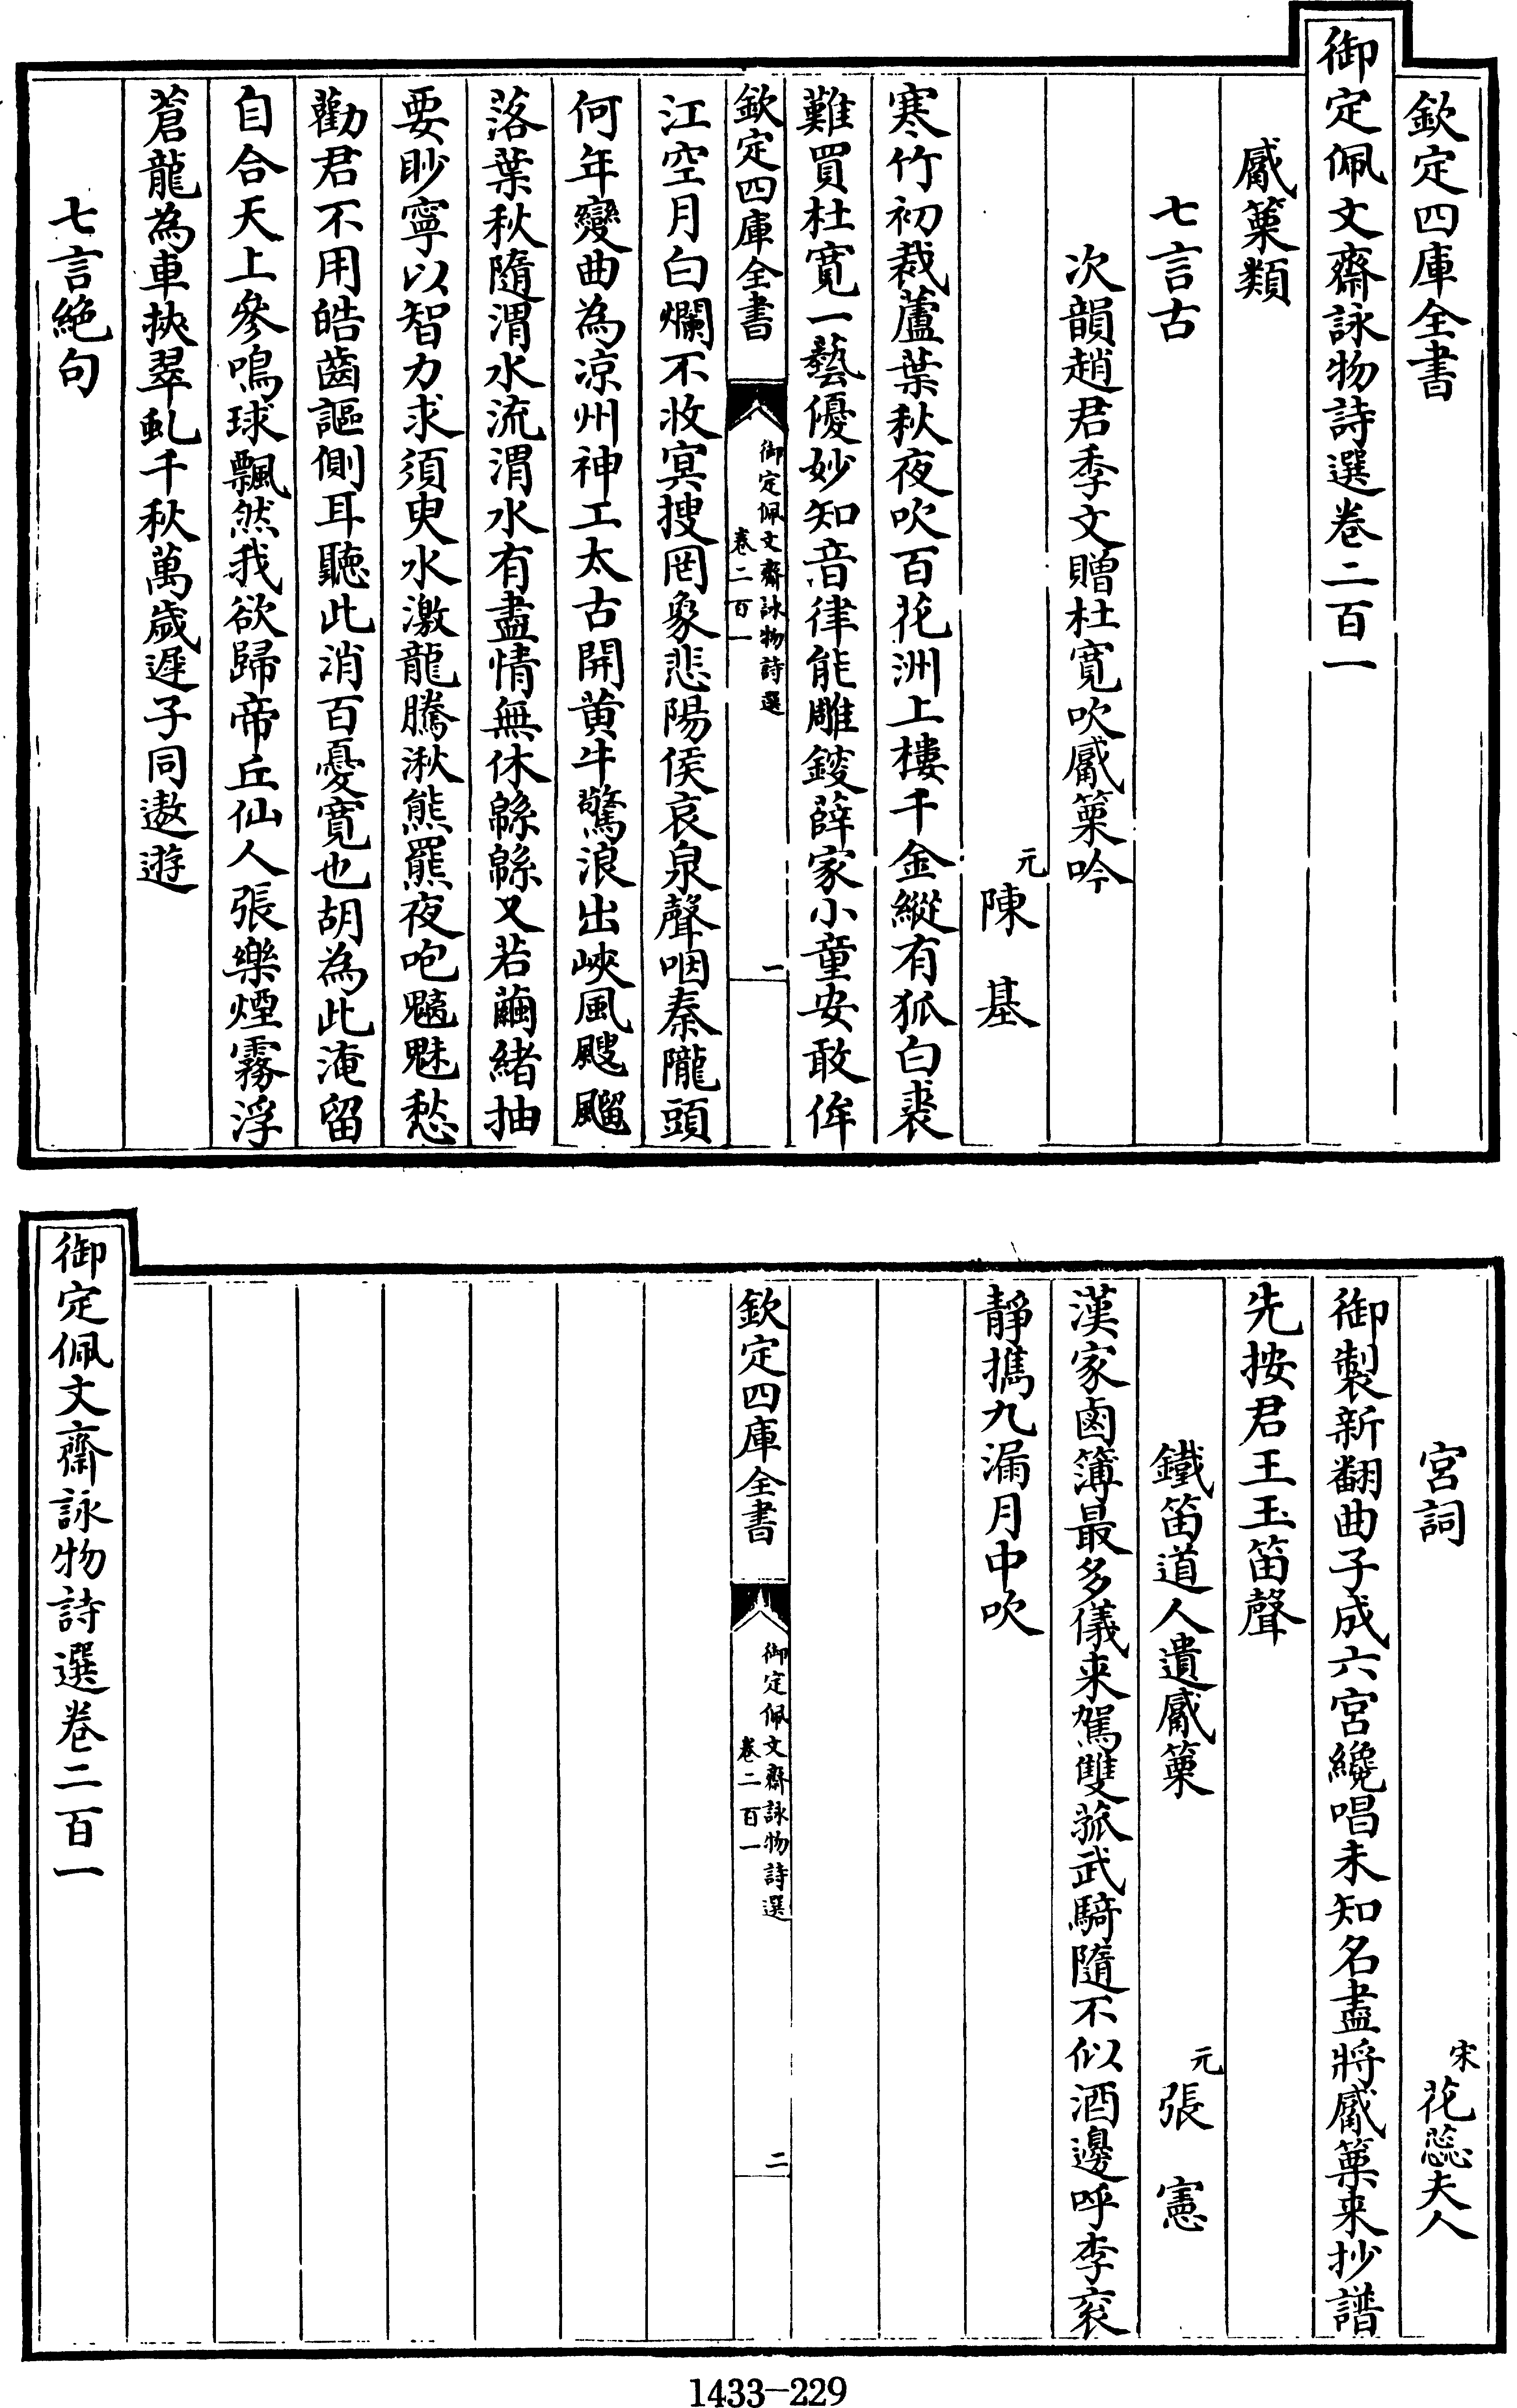 欽定四庫全書
御定佩文齋詠物詩選卷二百一
觱篥類
七言古
次韻趙君季文贈杜寛吹觱篥吟
元陳基
寒竹初裁蘆葉秋夜吹百花洲上樓千金縱有狐白裘
難買杜寛一藝優妙知音律能雕鎪薛家小童安敢侔
欽定四庫全書
御定佩文齋詠物詩選
卷二百一
一
江空月白爛不收冥搜罔象悲陽侯哀泉聲咽秦隴頭
何年變曲為涼州神工太古開黄牛驚浪出峽風颼飀
落葉秋隨渭水流渭水有盡情無休緜緜又若繭緒抽
要眇寧以智力求須臾水激龍騰湫熊羆夜咆魑魅愁
勸君不用皓齒謳側耳聽此消百憂寛也胡為此淹留
自合天上參鳴球飄然我欲歸帝丘仙人張樂煙霧浮
蒼龍為車挾翠虬千秋萬歲遲子同遨遊
七言絶句
宮詞
宋花蕊夫人
御製新翻曲子成六宮纔唱未知名盡將觱篥来抄譜
先按君王玉笛聲
鐵笛道人遺觱篥
元張憲
漢家鹵簿最多儀来駕雙菰武騎隨不似酒邊呼李衮
靜搊九漏月中吹
欽定四庫全書
御定佩文齋詠物詩選
卷二百一
二
御定佩文齋詠物詩選卷二百一
1433-229